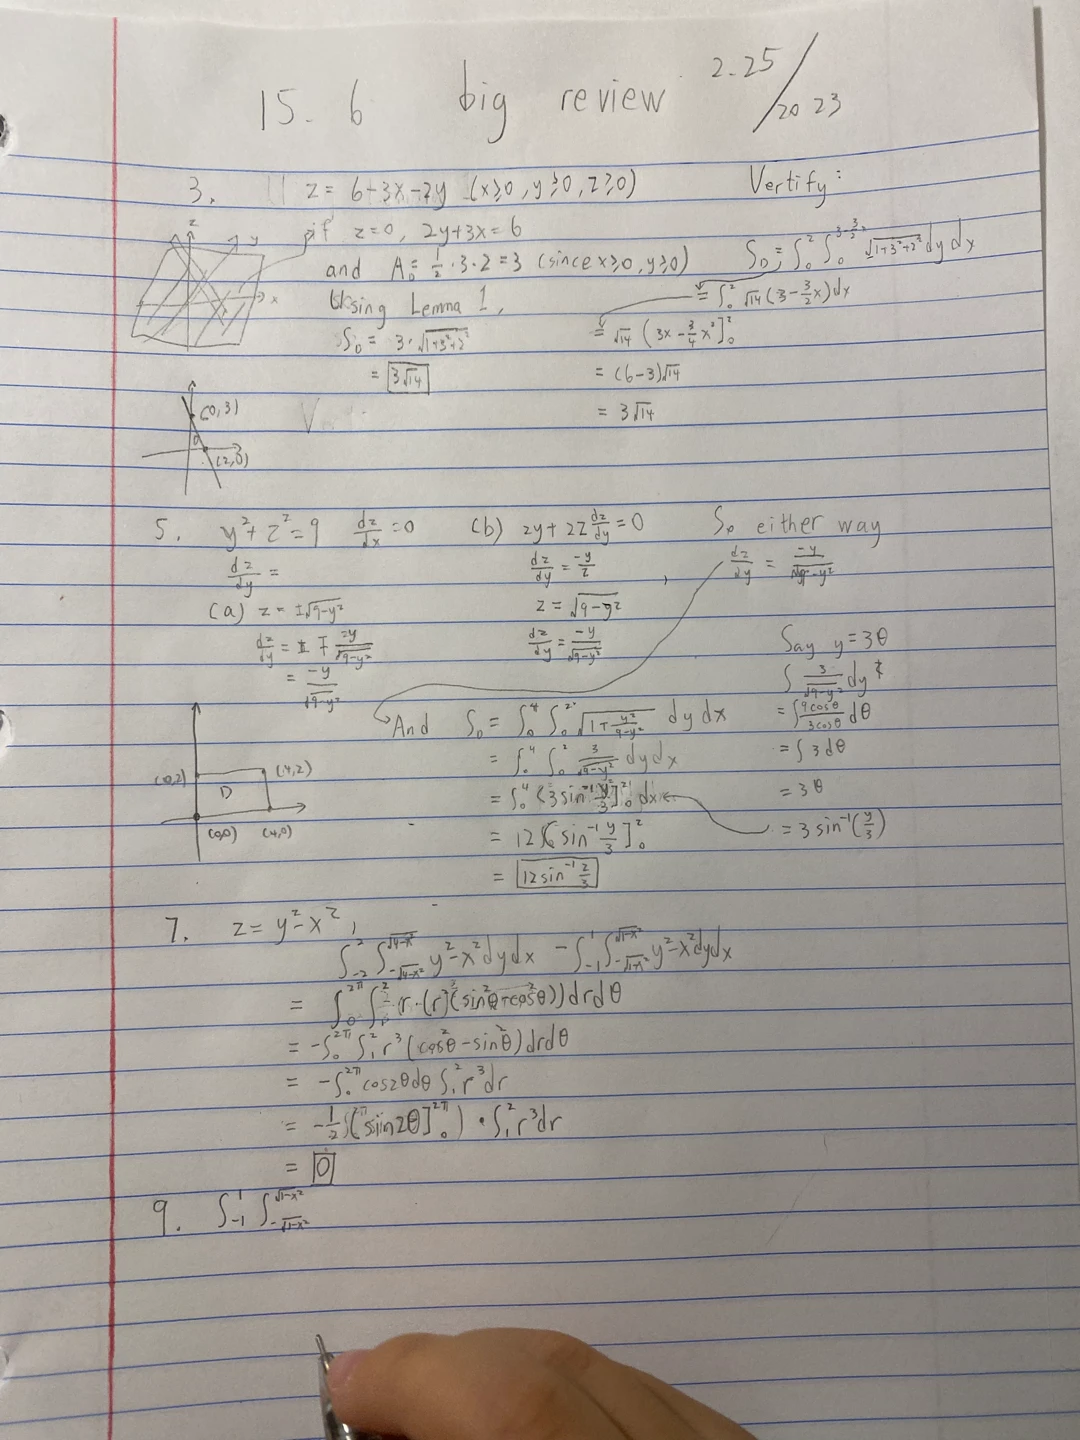 15.6 big review 2.25/2023
3. z = 6+3x-2y (x≥0, y≥0, z≥0)
if z=0, 2y+3x=6
and A_D = 1/2·3·2 = 3 (since x≥0, y≥0)
Using Lemma 1,
S_D = 3·√(1+3²+2²)
= 3√14
Vertify:
S_D = ∫_0^2 ∫_0^{3-3/2x} √(1+3²+2²) dy dx
= ∫_0^2 √14 (3-3/2x) dx
= √14 (3x - 3/4 x²]_0^2
= (6-3)√14
= 3√14
z
y
x
(0,3)
D
(2,0)
5. y²+z²=9 dz/dx = 0
dz/dy =
(a) z = ±√(9-y²)
dz/dy = ∓ -y/√(9-y²)
= -y/√(9-y²)
(b) 2y + 2z dz/dy = 0
dz/dy = -y/z
z = √(9-y²)
dz/dy = -y/√(9-y²)
So either way
, dz/dy = -y/√(9-y²)
(0,2)
(4,2)
D
(0,0) (4,0)
And S_D = ∫_0^4 ∫_0^2 √(1+y²/(9-y²)) dy dx
= ∫_0^4 ∫_0^2 3/√(9-y²) dy dx
= ∫_0^4 (3sin⁻¹ y/3]_0^2 dx
= 12 [sin⁻¹ y/3]_0^2
= 12 sin⁻¹ 2/3
Say y = 3θ
∫ 3/√(9-y²) dy
= ∫ 9cosθ/3cosθ dθ
= ∫ 3 dθ
= 3θ
= 3 sin⁻¹(y/3)
7. z = y²-x²,
∫_{-2}^2 ∫_{-√(4-x²)}^{√(4-x²)} y²-x² dy dx - ∫_{-1}^1 ∫_{-√(1-x²)}^{√(1-x²)} y²-x² dy dx
= ∫_0^{2π} ∫_1^2 (r·(r²(sin²θ-cos²θ)) dr dθ
= -∫_0^{2π} ∫_1^2 r³(cos²θ-sin²θ) dr dθ
= -∫_0^{2π} cos2θ dθ ∫_1^2 r³ dr
= -1/2 (sin2θ]_0^{2π}) · ∫_1^2 r³ dr
= 0
9. ∫_{-1}^1 ∫_{-√(1-x²)}^{√(1-x²)}